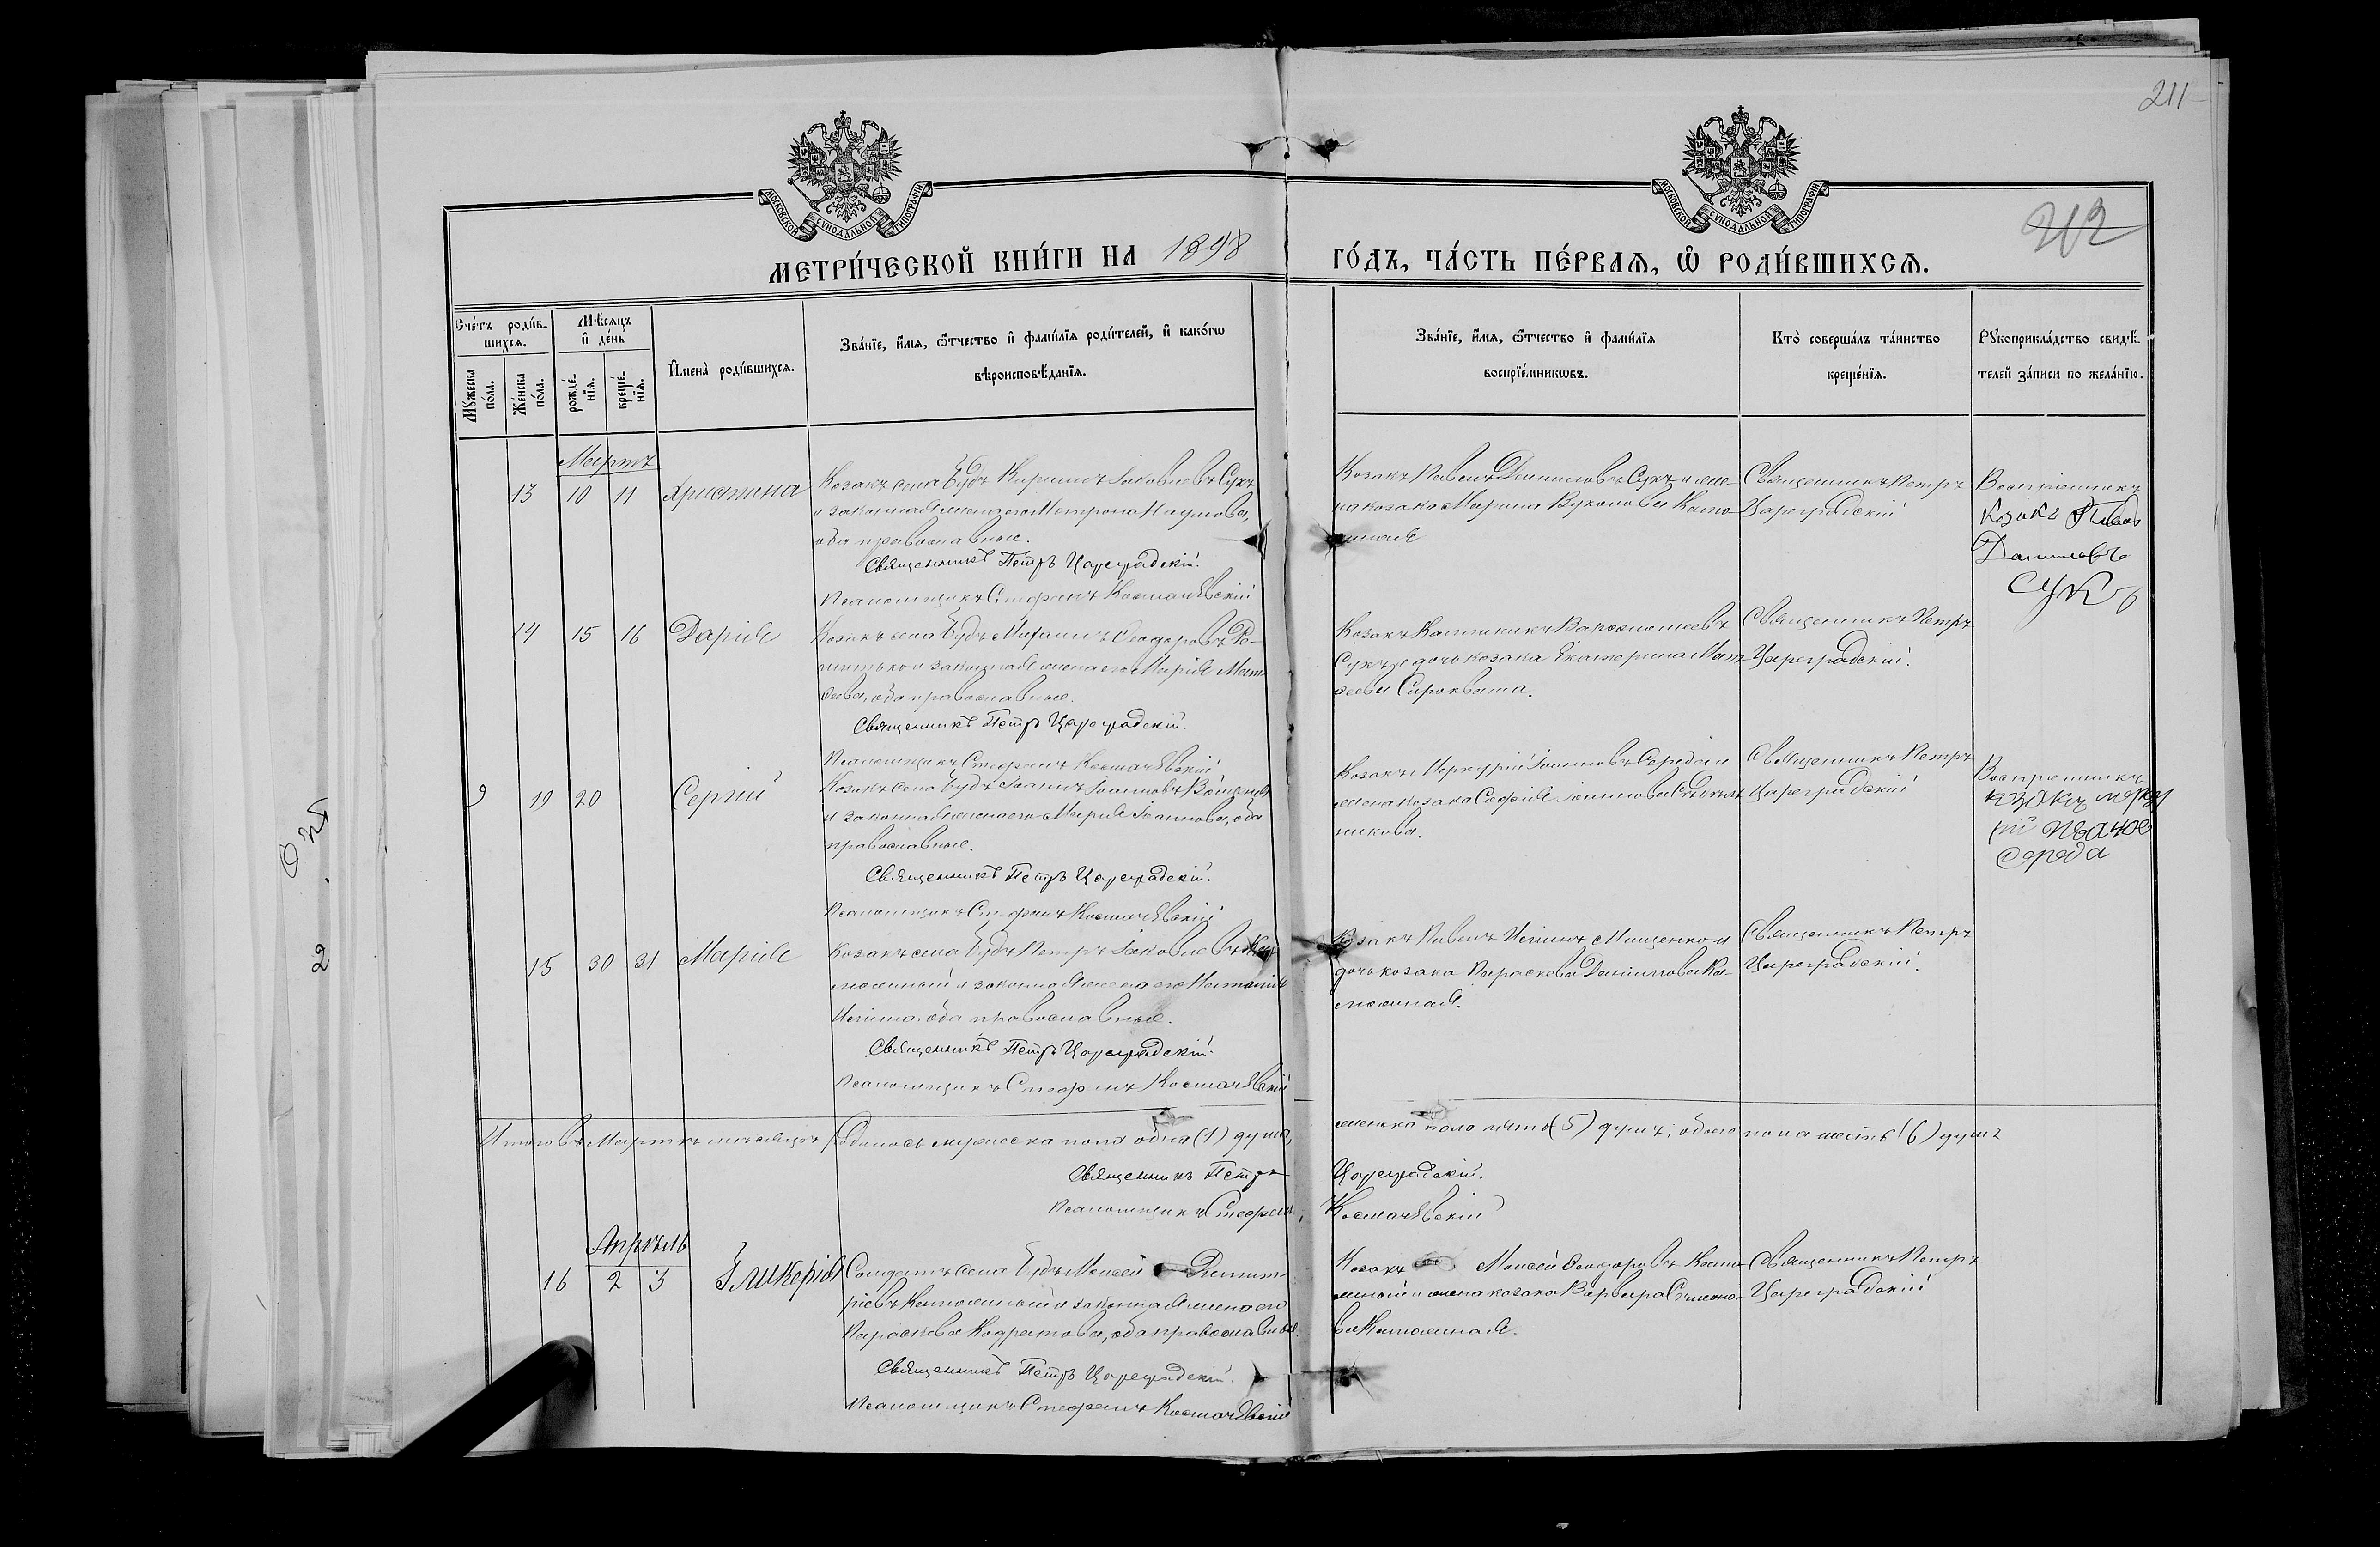 211
МОСКОВСКОЙ СѴНОДАЛЬНОЙ ТИПОГРАФІИ
МОСКОВСКОЙ СѴНОДАЛЬНОЙ ТИПОГРАФІИ
212
МЕТРИ́ЧЕСКОЙ КНИ́ГИ НА 1898 ГО́ДЪ, ЧА́СТЬ ПЕ́РВАѦ, Ѡ РОДИ́ВШИХСѦ.
Сче́тъ роди́в-
шихсѧ.
Мꙋ́жеска
по́ла.
Же́нска
по́ла.
Мѣ́сѧцъ
и҆ де́нь
рожде́-
нїѧ.
креще́-
нїѧ.
И҆мена̀ роди́вшихсѧ.
Зва́нїе, и҆́мѧ, ѻ҆́тчество и҆ фами́лїѧ роди́телей, и҆ како́гѡ
вѣроисповѣ́данїѧ.
Зва́нїе, и҆́мѧ, ѻ҆́тчество и҆ фами́лїѧ
воспрїе́мникѡвъ.
Кто̀ соверша́лъ та́инство
креще́нїѧ.
Рꙋкоприкла́дство свидѣ́-
телей за́писи по жела́нїю.
Мартъ
13 10 11 Христина
Козакъ села Будъ Кириллъ Іаковлевъ Сукъ
и законная жена его Матрона Наумова,
оба православные.
Священникъ Петръ Цареградскій.
Псаломщикъ Стефанъ Космачевскій
Козакъ Павелъ Даниловъ Сукъ и же-
на козака Марина
Священникъ Петръ
Цареградскій
Воспріемникъ
Козакъ Павел
Даниловъ
Сукъ
14 15 16 Дарія
Козакъ села Будъ Михаилъ Ѳеодоровъ
и законная жена его Марія Мат-
ѳеева, оба православные.
Священникъ Петръ Цареградскій.
Псаломщикъ Стефанъ Космачевскій
Козакъ Каллиникъ
Сукъ и дочь козака Екатерина Мат-
ѳеева Сыроквата.
Священникъ Петръ
Цареградскій.
9 19 20 Сергій
Козакъ села Будъ Іоаннъ Іоанновъ
и законная жена его Марія Іоаннова, оба
православные.
Священникъ Петръ Цареградскій.
Псаломщикъ Стефанъ Космачевскій
Козакъ Меркурій Іоанновъ Середа и
жена козака Софія Іоаннова
никова.
Священникъ Петръ
Цареградскій
Воспріемникъ
казакъ Мерку
рій Иванов
Середа
15 30 31 Марія
Козакъ села Будъ Петръ Іаковлевъ
и законная жена его Наталія
оба православные.
Священникъ Петръ Цареградскій.
Псаломщикъ Стефанъ Космачевскій
Козакъ Павелъ Мищенко и
дочь козака Параскева Даніилова
Священникъ Петръ
Цареградскій.
Итого въ Мартѣ мѣсяцѣ родилось мужеска пола одна (1) душа, женска пола пять (5) душъ, обоего пола шесть (6) душъ
Священникъ Петръ Цареградскій.
Псаломщикъ Стефанъ Космачевскій
Апрѣль
16 2 3 Гликерія
Солдатъ села Будъ Моисей Димит-
ріевъ и законная жена его
Параскева Кодратова, оба православные.
Священникъ Петръ Цареградскій.
Псаломщикъ Стефанъ Космачевскій
Козакъ Моисей Ѳеодоровъ
и жена козака Варвара Симеоно-
ва
Священникъ Петръ
Цареградскій